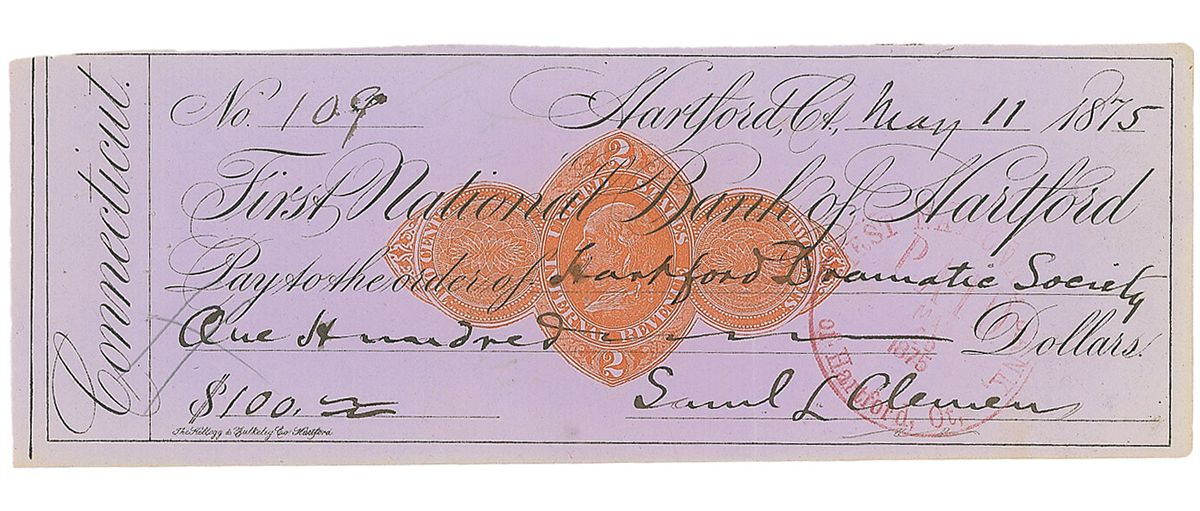 Connecticut.
No. 109 Hartford, Ct., May 11 1875
First National Bank of Hartford
Pay to the order of Hartford Dramatic Society
One Hundred Dollars.
$100.
Saml L Clemens
The Kellogg & Bulkeley Co Hartford
2
UNITED STATES
INTERNAL REVENUE
2
PAID
1875
of Hartford, Ct.